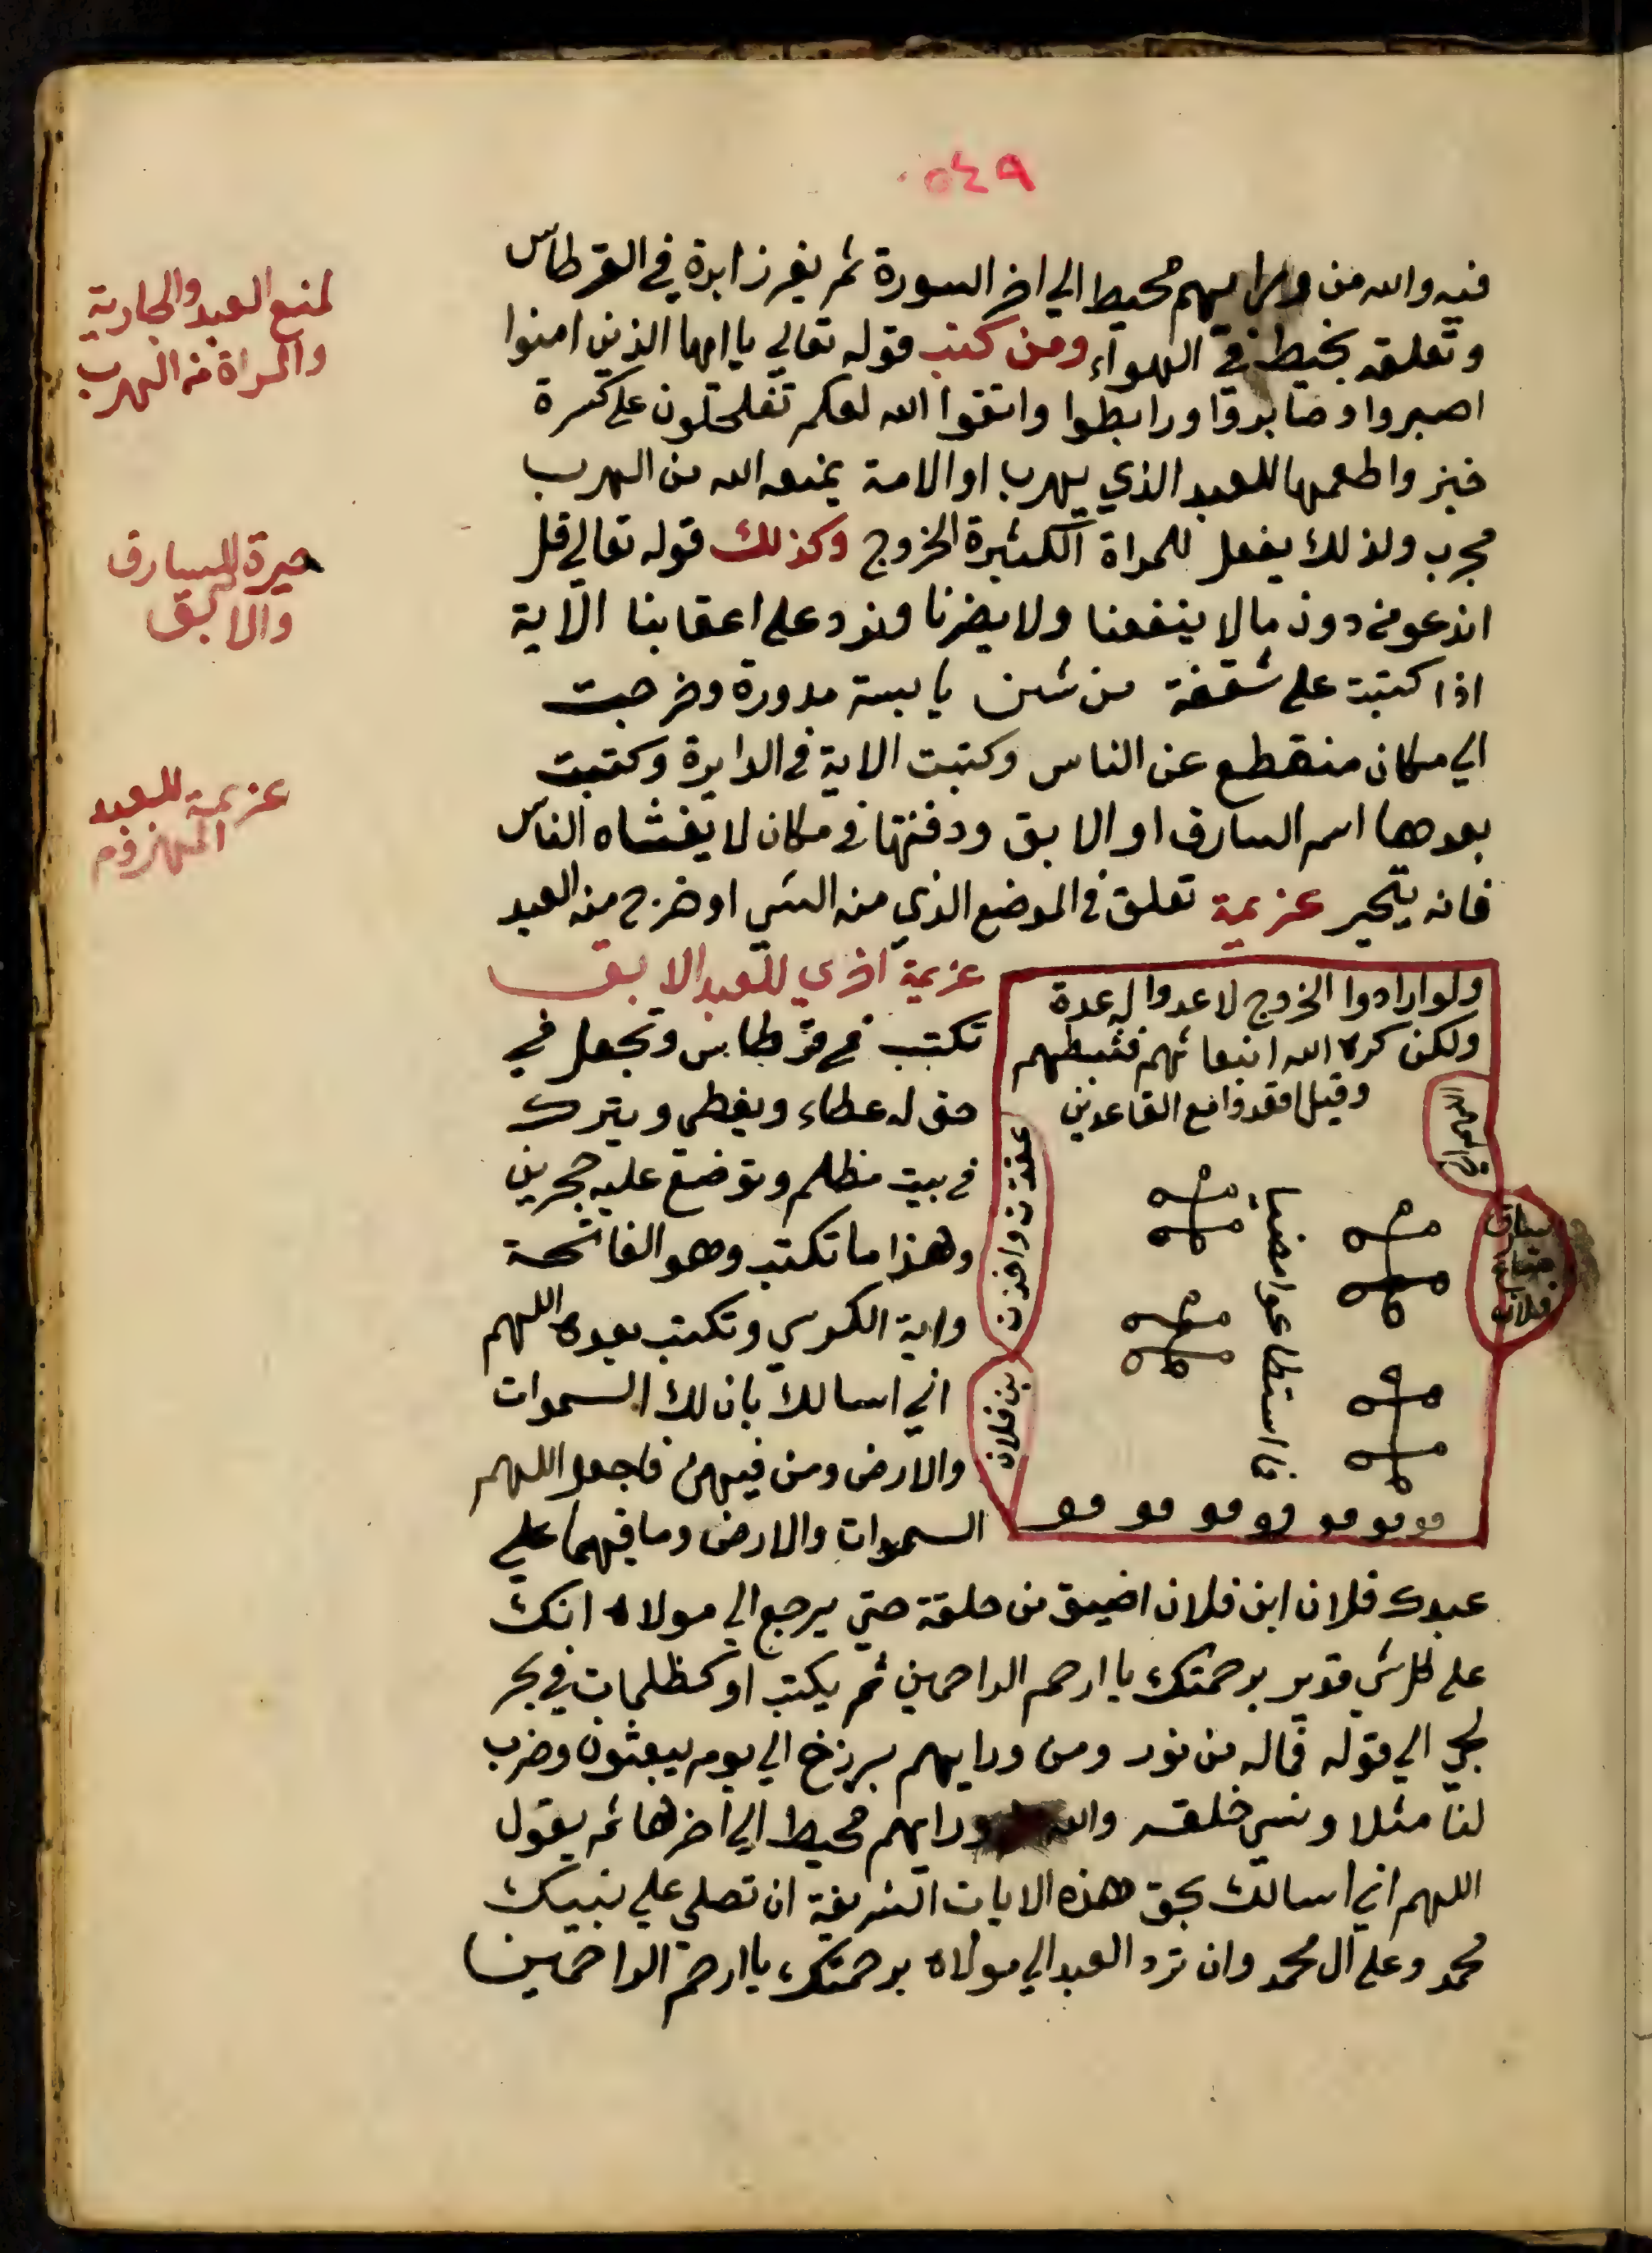 ٥٤٩
فيه والله من ورايهم محيط الي اخر السورة ثم يغرز ابرة في القرطاس
وتعلقه بخيط في الهواء ومن كتب قوله تعالي يا ايها الذين امنوا
اصبروا وصابروا ورابطوا واتقوا الله لعلكم تفلحون على كسرة
خبز واطعمها للعبد الذي يهرب او الامة يمنعه الله من الهرب
مجرب ولذلك يفعل للمراة الكثيرة الخروج وكذلك قوله تعالي قل
اندعو من دون ما لا ينفعنا ولا يضرنا ونرد على اعقابنا الآية
اذا كتبت على شقفة من شن يابسة مدورة وخرجت
الي مكان منقطع عن الناس وكتبت الاية في الدايرة وكتبت
بعدها اسم السارق او الابق ودفنتها في مكان لا يغشاه الناس
فانه يتحير عزيمة تعلق في الموضع الذي منه الشي او خرج منه العبد
لمنع العبد والجارية
والمراة من الهرب
حيرة للسارق
والابق
عزيمة للعبد
المهزوم
ولو ارادوا الخروج لاعدوا له عدة
ولكن كره الله انبعاثهم فثبطهم
وقيل اقعدوا مع القاعدين
فما استطاعوا مضيا
عقدت واخذت
بن فلان
سارق
متاع
فلان
عزيمة اخري للعبد الابق
تكتب في قرطاس وتجعل في
حق له غطاء ويغطى ويترك
في بيت مظلم وتوضع عليه حجرين
وهذا ما تكتب وهو الفاتحة
واية الكرسي وتكتب بعده اللهم
اني اسالك بان لك السموات
والارض ومن فيهن فاجعل اللهم
السموات والارض وما فيهما علي
عبدك فلان ابن فلان اضيق من حلقة حتي يرجع الي مولاه انك
على كل شي قدير برحمتك يا ارحم الراحمين ثم يكتب او كظلمات في بحر
لجي الي قوله فما له من نور ومن ورايهم برزخ الي يوم يبعثون وضرب
لنا مثلا ونسي خلقه والله ورايهم محيط الي اخرها ثم يقول
اللهم اني اسالك بحق هذه الايات الشريفة ان تصلي علي نبيك
محمد وعلى آل محمد وان ترد العبد الي مولاه برحمتك يا ارحم الراحمين